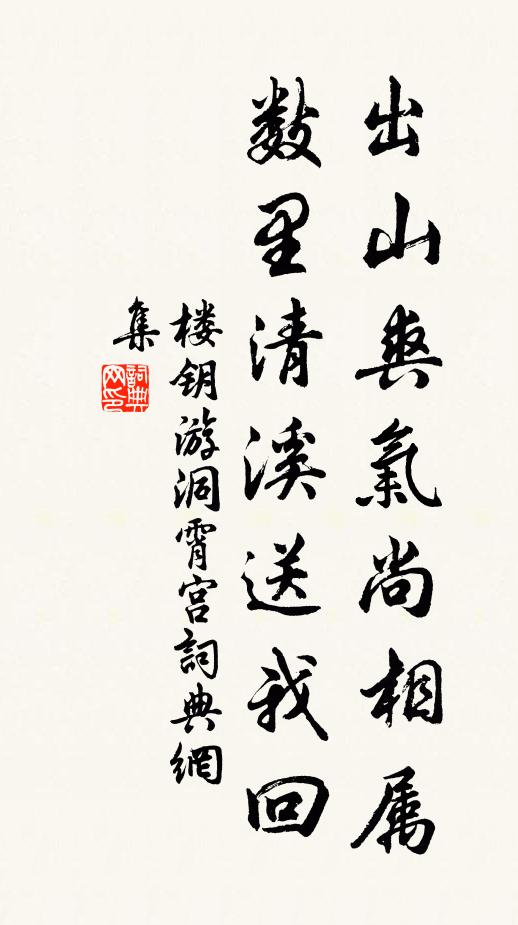 出山爽氣尚相属
数里清溪送我回
楼钥游洞霄宫詞典網
集
詞典
网印